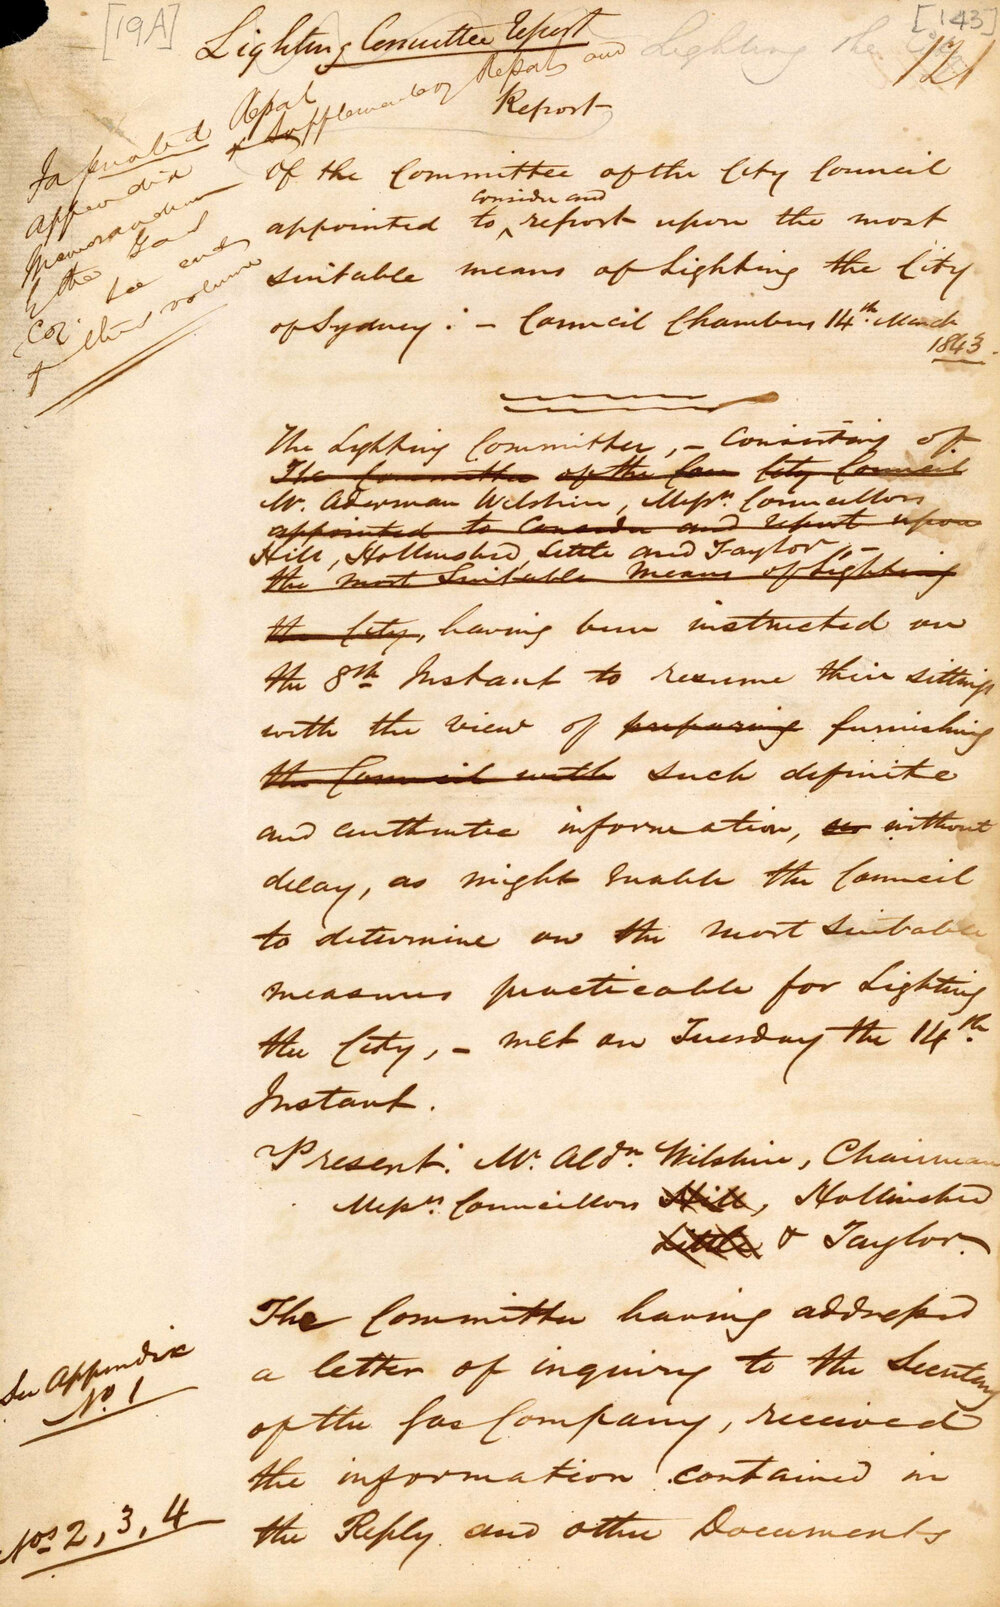 [19A]
[143]
121
Lighting Committee Report
Lighting the City
Report
For printed Report
& Supplementary Report and
Appendix
Memorandum
by the Gas
Coy. see end
of this volume
Of the Committee of the City Council
consider and
appointed to ^ report upon the most
suitable means of Lighting the City
of Sydney: – Council Chambers 14th. March
1843.
The Lighting Committee, – Consisting of
The Committee of the City Council
Mr. Alderman Wilshire, Messrs. Councillors
appointed to Consider and report upon
Hill, Hollinshed, Little and Taylor, –
the most Suitable means of Lighting
the City, having been instructed on
the 8th Instant to resume their sittings
with the view of preparing furnishing
the Council with such definite
and authentic information, without
delay, as might enable the Council
to determine on the most Suitable
measures practicable for Lighting
the City, – met on Tuesday the 14th.
Instant.
Present: Mr. Aldn. Wilshire, Chairman
Messrs. Councillors Hill, Hollinshed
Little & Taylor.
The Committee having addressed
See Appendix
No. 1
a letter of inquiry to the Secretary
of the Gas Company, received
the information contained in
Nos 2, 3, 4
the Reply and other Documents